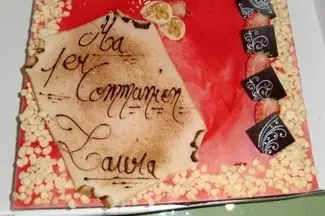 Ma
1er
Communion
Laura